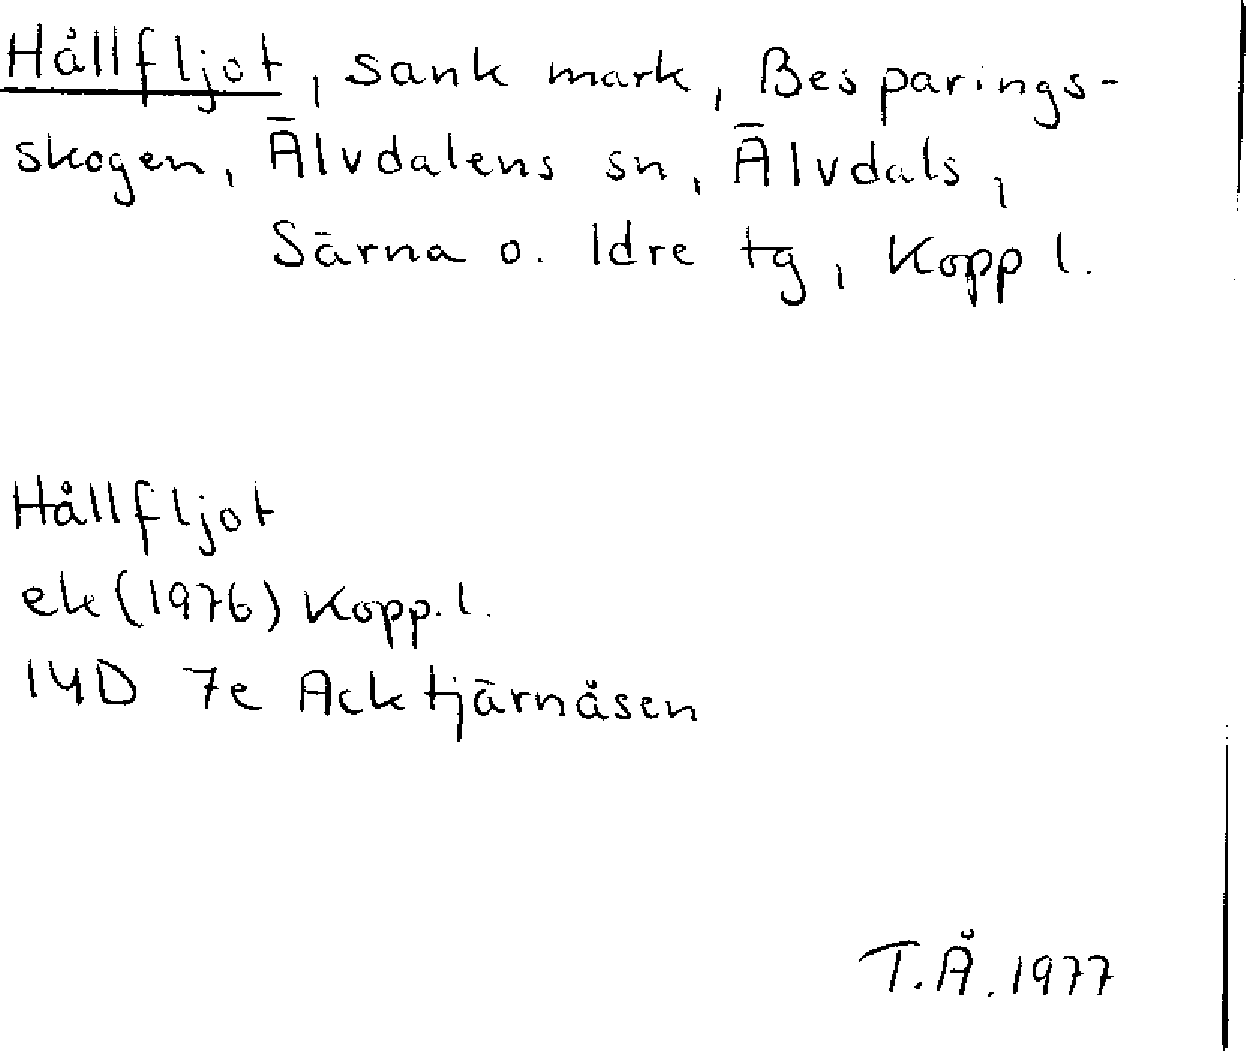 Hållfljot, sank mark, Besparings-
skogen, Älvdalens sn, Älvdals,
Särna o. Idre tg, Kopp l.
Hållfljot
ek (1976) Kopp. l.
14D 7e Acktjärnåsen
T.Å. 1977